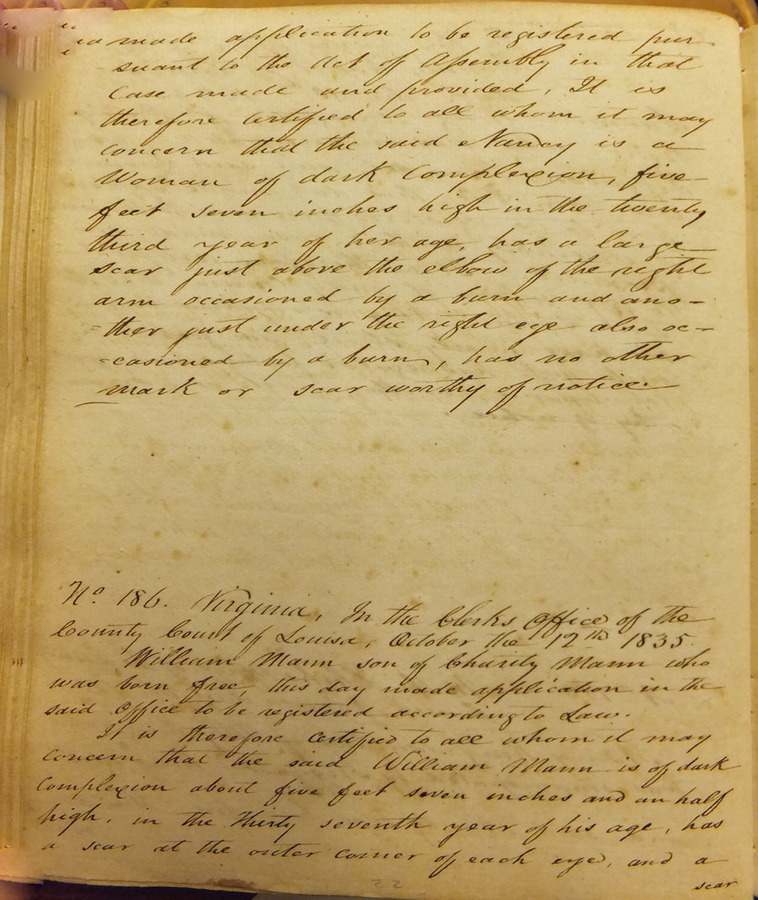 made application to be registered pur
suant to the Act of Assembly in that
Case made and provided, It is
therefore Certified to all whom it may
Concern that the said Nancy is a
Woman of dark Complexion, five
feet seven inches high in the twenty
third year of her age, has a large
scar just above the elbow of the right
arm occasioned by a burn and ano-
-ther just under the right eye also oc-
-casioned by a burn, has no other
mark or scar worthy of notice
No. 186. Virginia, In the Clerks Office of the
County Court of Louisa, October the 12th 1835.
William Mann son of Charity Mann who
was born free, this day made application in the
said Office to be registered according to Law.
It is therefore Certified to all whom it may
Concern that the said William Mann is of dark
Complexion about five feet seven inches and an half
high, in the Thirty seventh year of his age, has
a scar at the outer corner of each eye, and a
scar
22